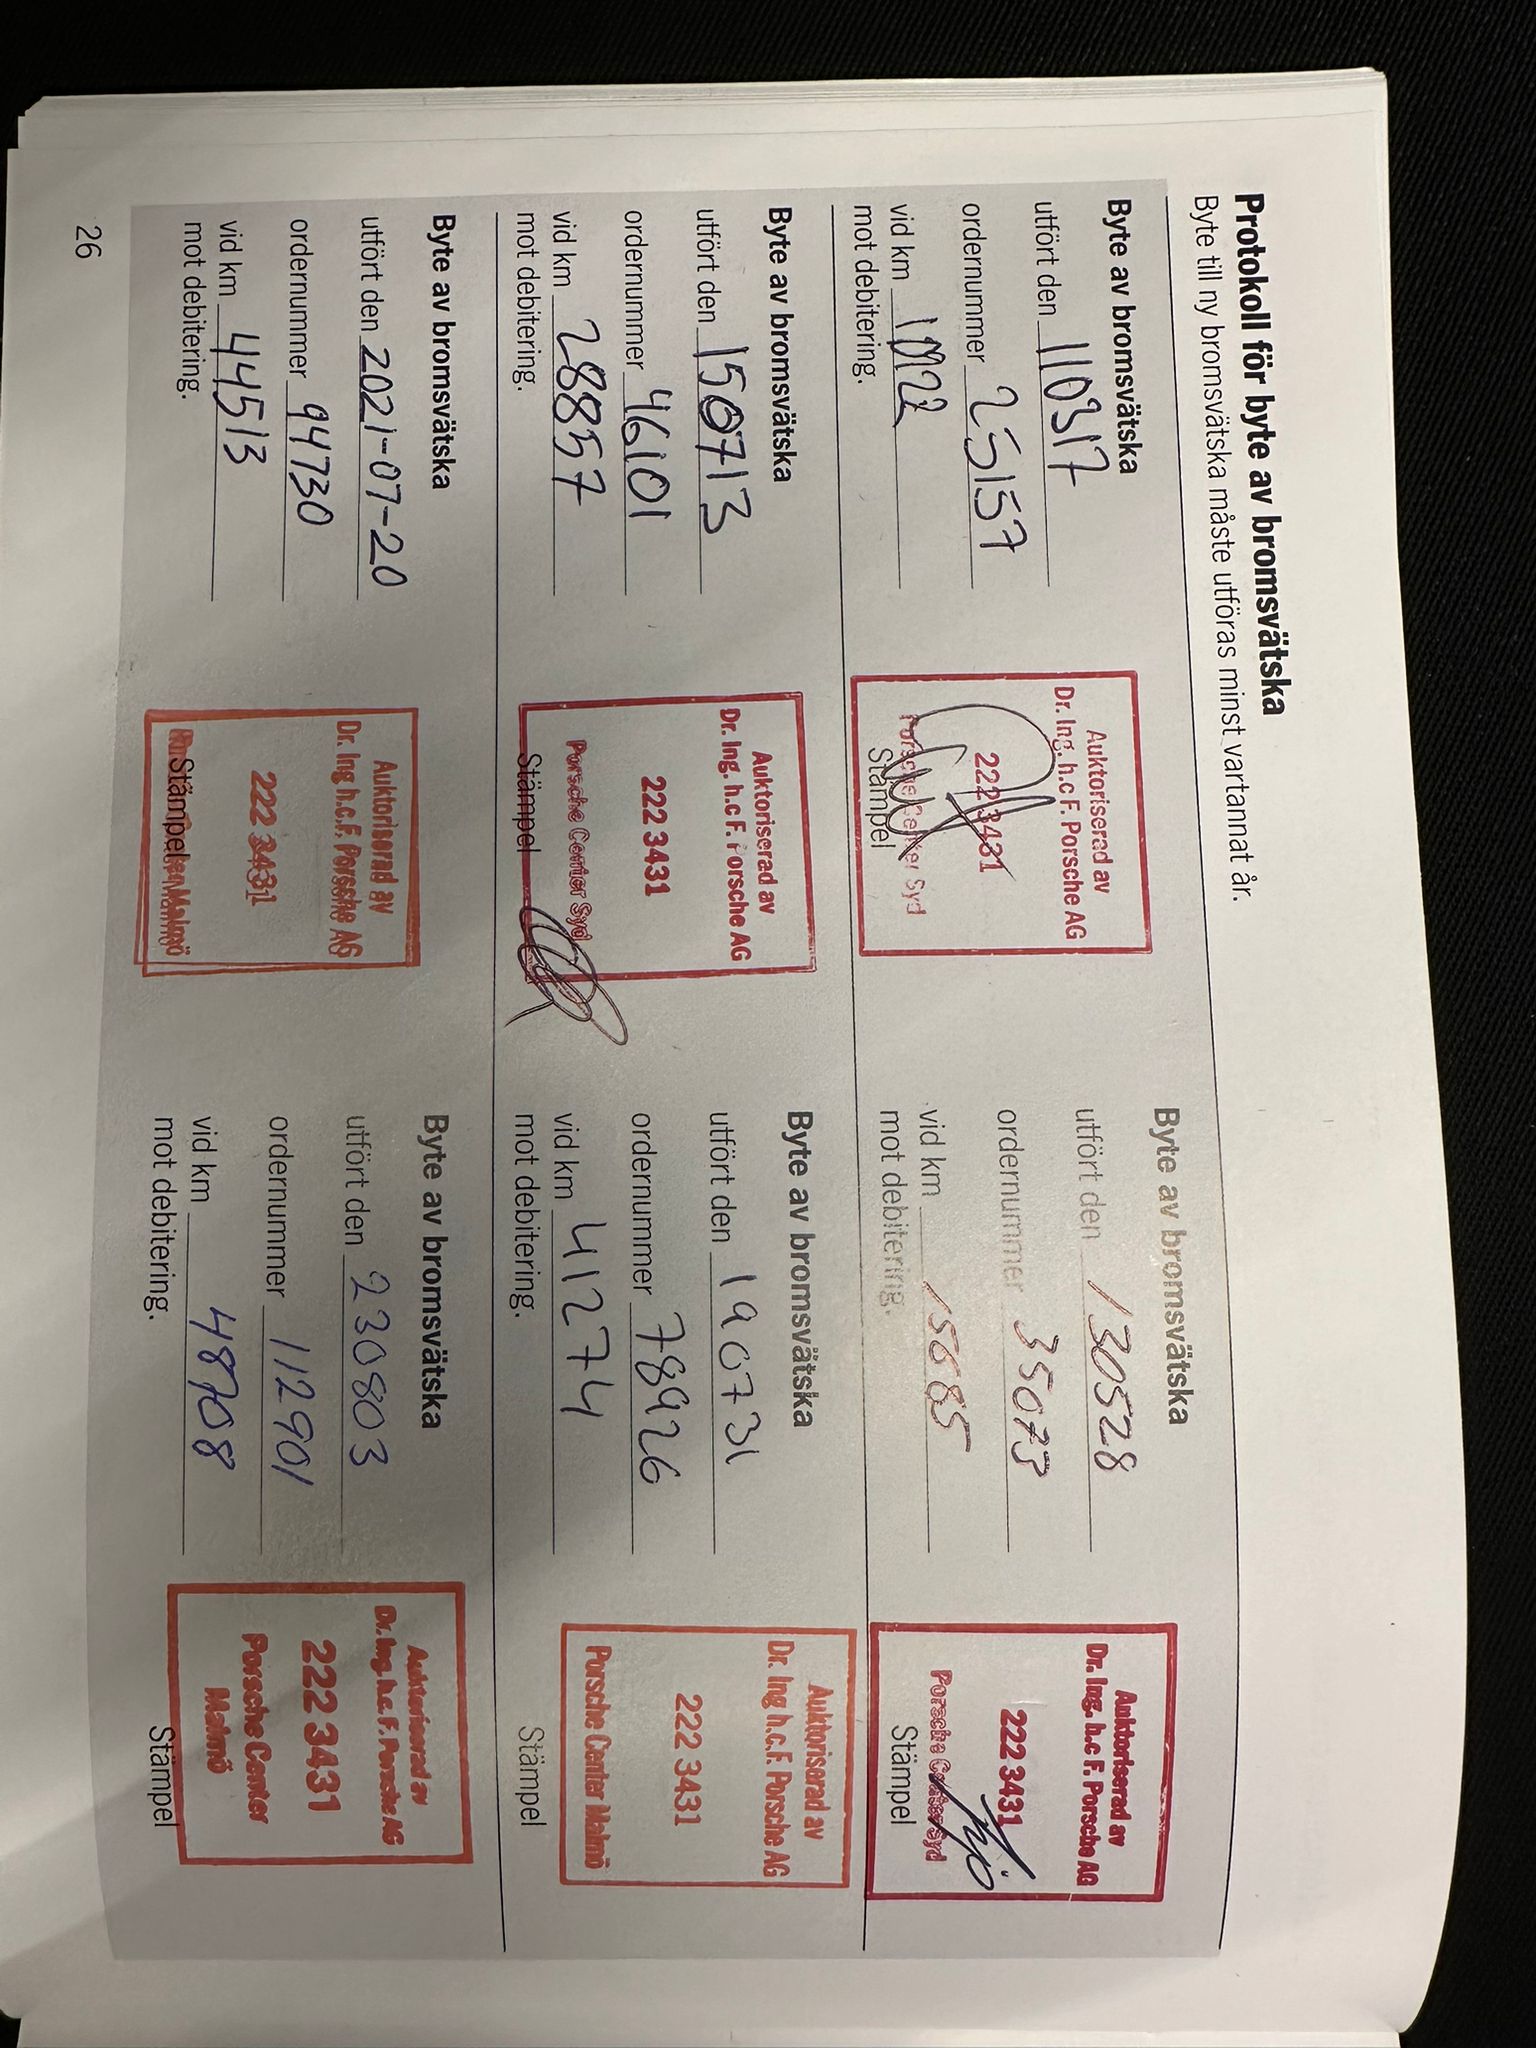 Protokoll för byte av bromsvätska
Byte till ny bromsvätska måste utföras minst vartannat år.
Byte av bromsvätska
utfört den 110317
ordernummer 25157
vid km
mot debitering.
Auktoriserad av
Dr. Ing. h.c F. Porsche AG
222 3431
Porsche Center Syd
Stämpel
Byte av bromsvätska
utfört den 130528
ordernummer 35073
vid km 15685
mot debitering.
Auktoriserad av
Dr. Ing. h.c F. Porsche AG
222 3431
Porsche Center Syd
Stämpel
Byte av bromsvätska
utfört den 150713
ordernummer 46101
vid km 28857
mot debitering.
Auktoriserad av
Dr. Ing. h.c F. Porsche AG
222 3431
Porsche Center Syd
Stämpel
Byte av bromsvätska
utfört den 190731
ordernummer 78926
vid km 41274
mot debitering.
Auktoriserad av
Dr. Ing h.c.F. Porsche AG
222 3431
Porsche Center Malmö
Stämpel
Byte av bromsvätska
utfört den 2021-07-20
ordernummer 94730
vid km 44513
mot debitering.
Auktoriserad av
Dr. Ing h.c.F. Porsche AG
222 3431
Malmö
Stämpel
Byte av bromsvätska
utfört den 230803
ordernummer 112901
vid km 48708
mot debitering.
Auktoriserad av
Dr. Ing. h.c. F. Porsche AG
222 3431
Porsche Center
Malmö
Stämpel
26